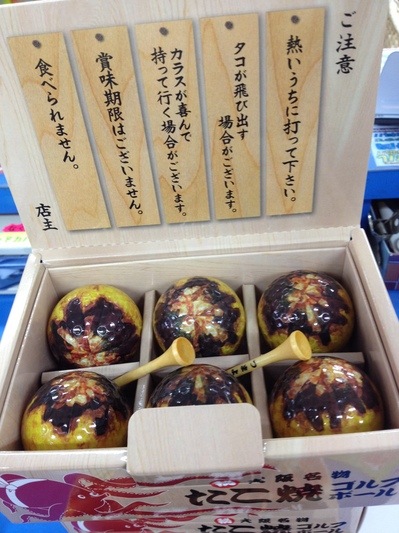 ご注意
熱いうちに打って下さい。
タコが飛び出す
場合がございます。
カラスが喜んで
持って行く場合がございます。
賞味期限はございません。
食べられません。
店主
大阪名物
たこ焼
ゴルフ
ボール
大阪名物
たこ焼
ゴルフ